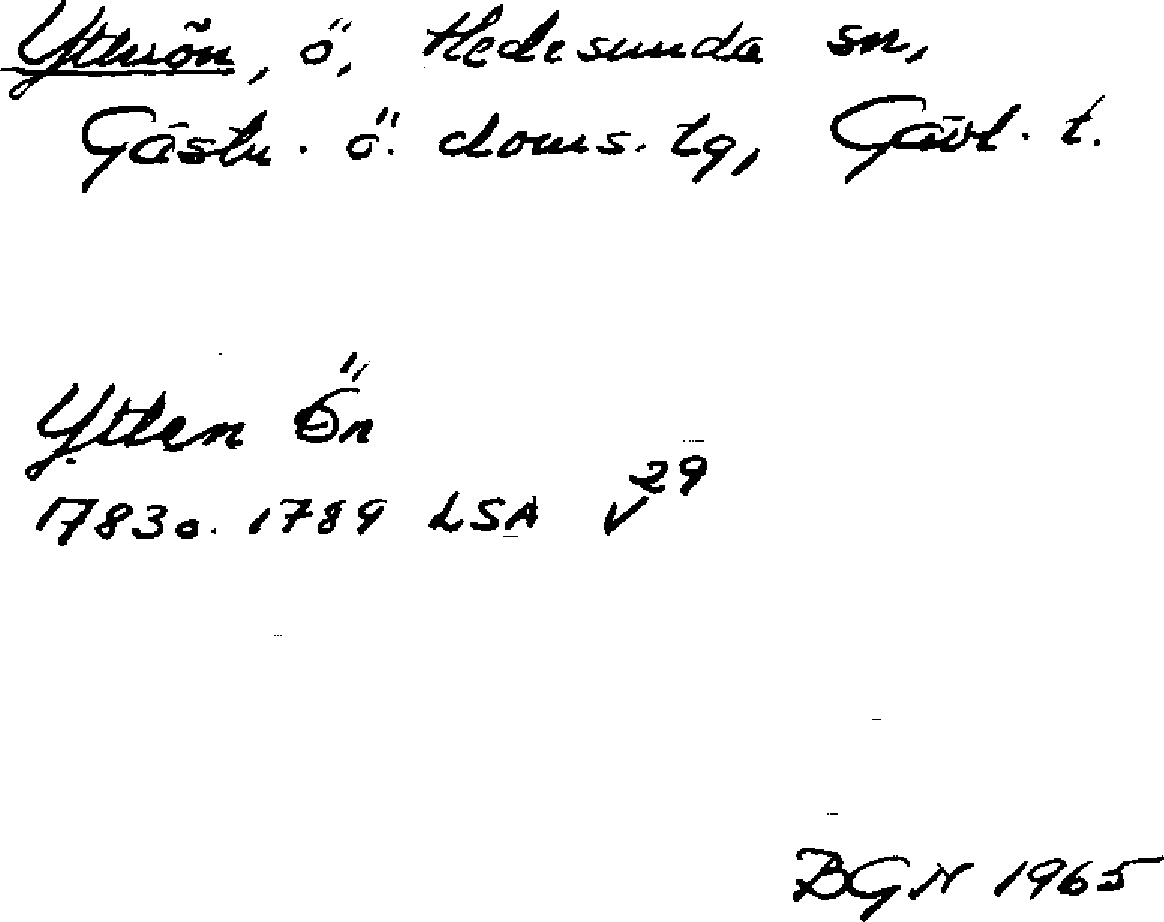 Ytterön, ö, Hedesunda sn,
Gästr. ö. doms. tg, Gävl. l.
Ytteren Ön
1783 o. 1789 LSA √29
BGN 1965